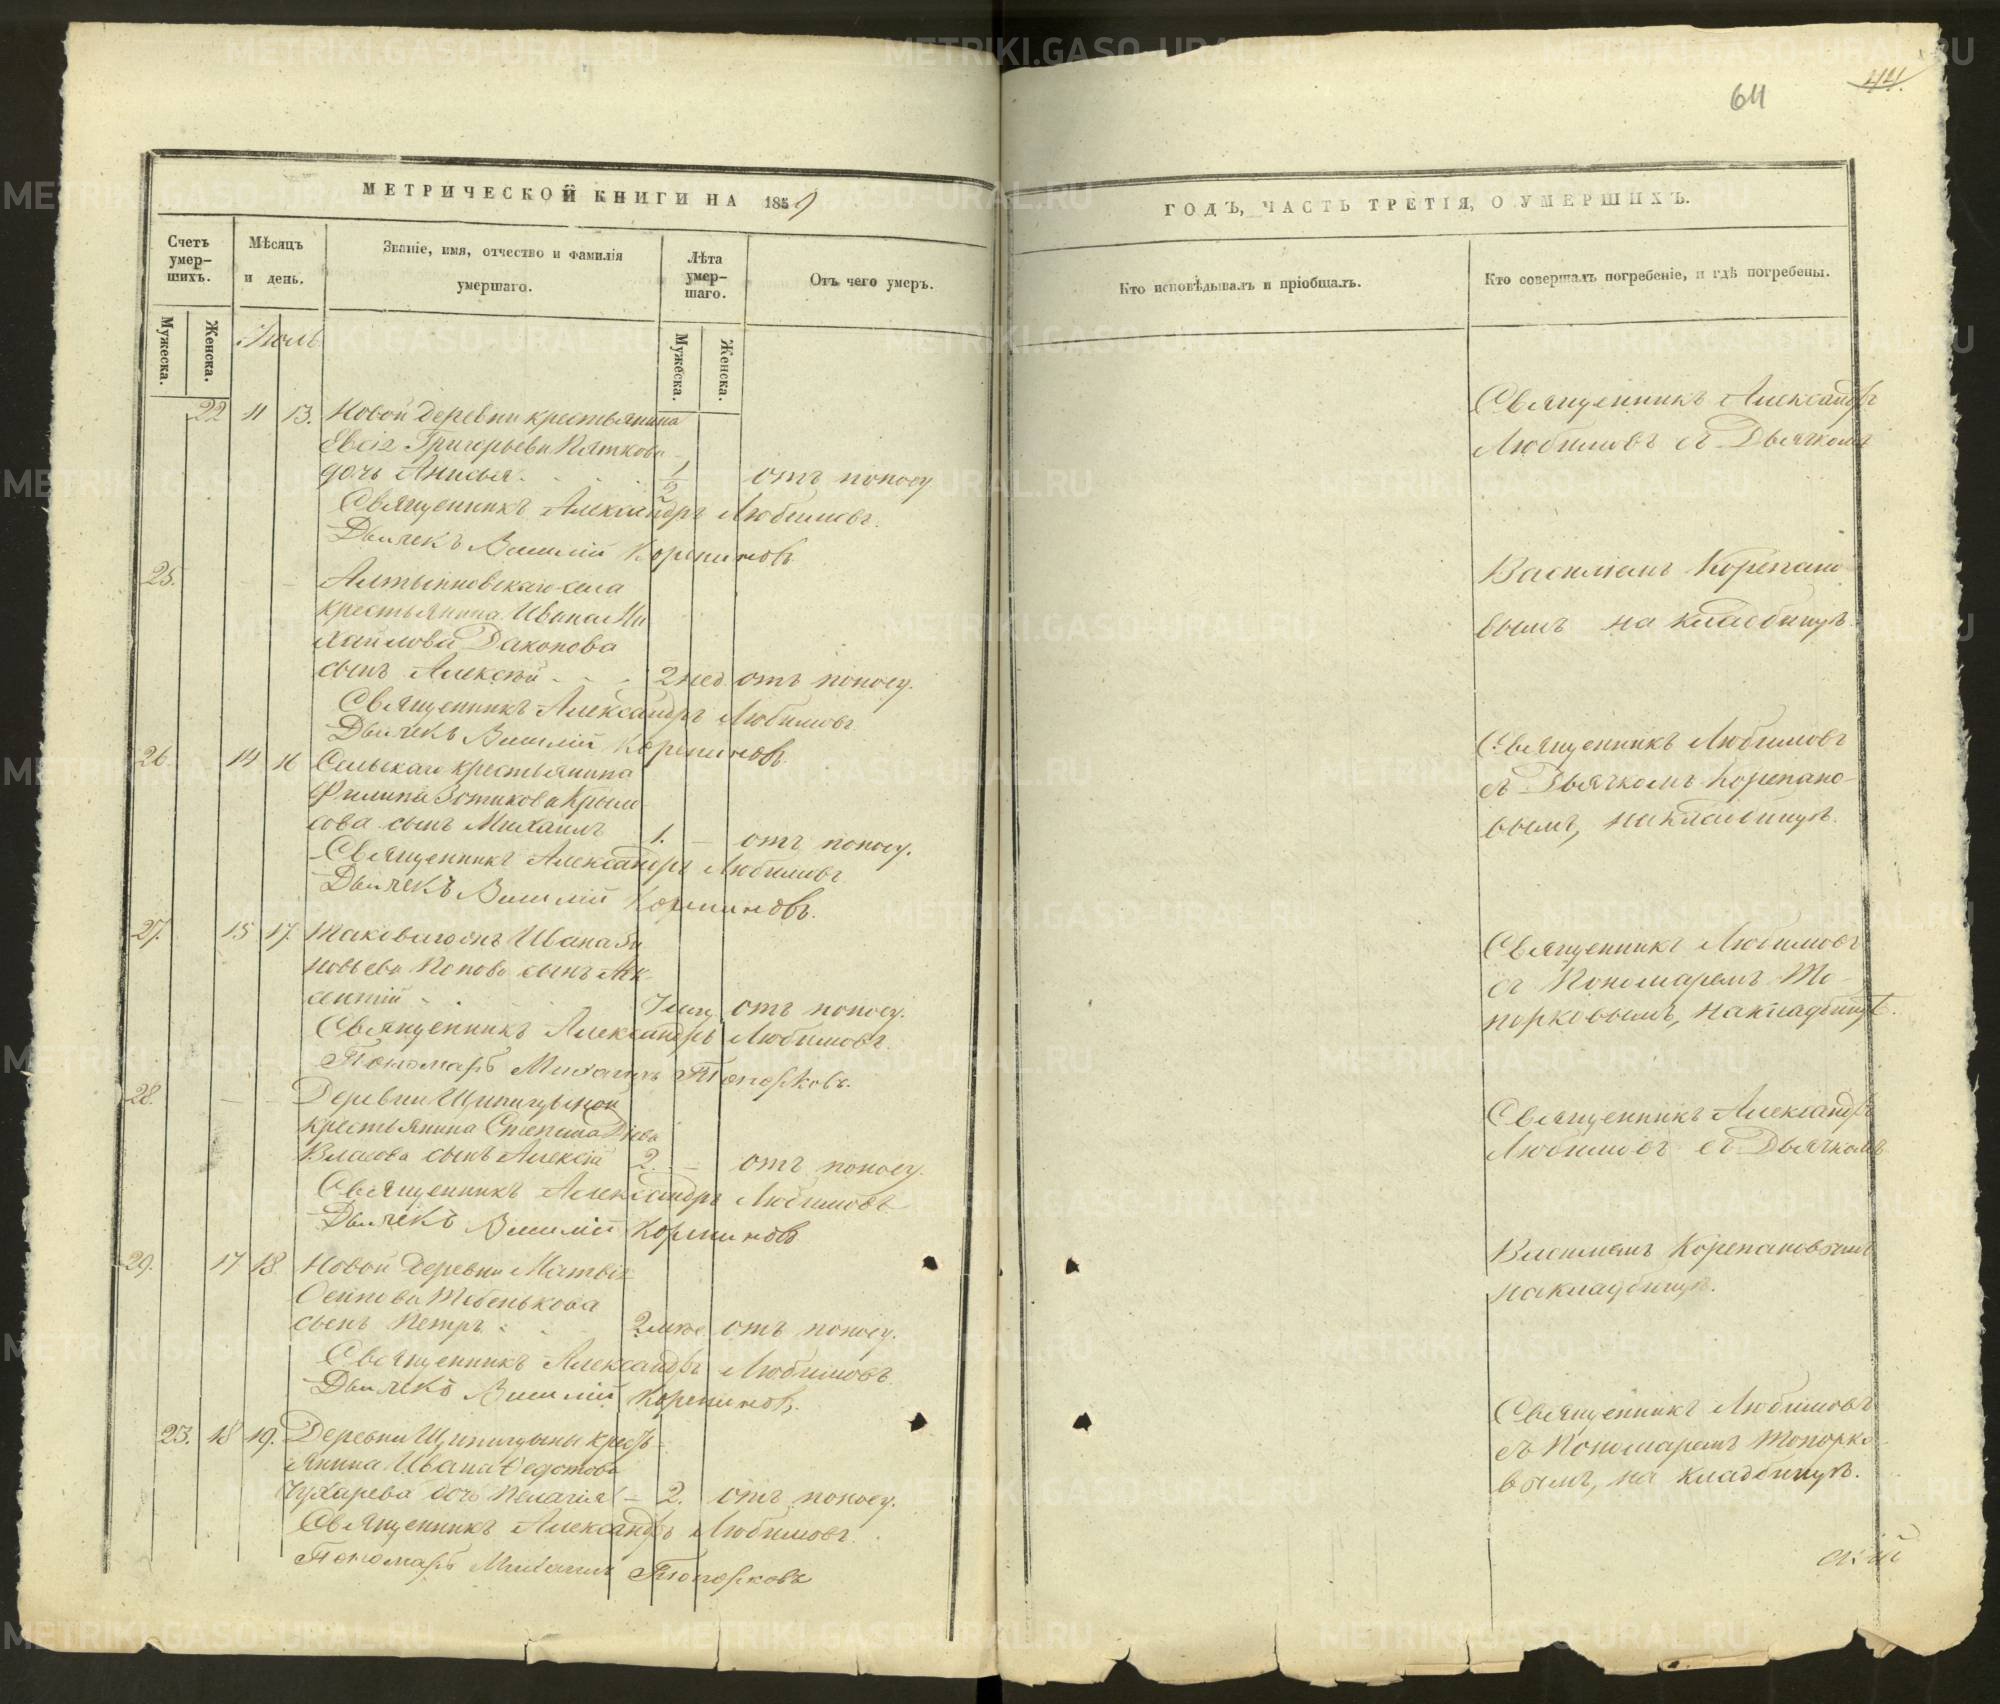 64
44.
МЕТРИЧЕСКОЙ КНИГИ НА 1859
Счетъ умер-шихъ.
Мѣсяцъ и день.
Званіе, имя, отчество и фамилія умершаго.
Лѣта умер-шаго.
Отъ чего умеръ.
Мужеска.
Женска.
Мужеска.
Женска.
Іюль
22 11 13. Новой деревни крестьянина
Евсія Григорьева Пяткова
дочь Анисья. 1/2 отъ поносу
Священникъ Александръ Любимовъ.
Дьячекъ Василій Корепановъ
25. Алтынновскаго села
крестьянина Ивана Ми
хайлова
сынъ Алексѣй 2 нед отъ поносу.
Священникъ Александръ Любимовъ
Дьячекъ Василій Корепановъ.
26. 14 16 Сельскаго крестьянина
Филипа Зотикова
сова сынъ Михаилъ 1. отъ поносу.
Священникъ Александръ Любимовъ
Дьячекъ Василій Корепановъ.
27. 15 17. Таковагожъ Ивана Зи
новьева Попова сынъ Ав-
сентій отъ поносу.
Священникъ Александръ Любимовъ.
Пономарь Михаилъ Топорковъ.
28. Деревни Шипицыной
крестьянина Степана
Власова сынъ Алексѣй 2. отъ поносу.
Священникъ Александръ Любимовъ
Дьячекъ Василій Корепановъ
29. 17 18 Новой деревни Матвѣя
Осипова Тебенькова
сынъ Петръ 2 мѣс. отъ поносу.
Священникъ Александръ Любимовъ
Дьячекъ Василій Корепановъ.
23. 18 19. Деревни Шипицыны кресть-
янина Ивана Федотова
Чухарева дочь Пелагія 2. отъ поносу.
Священникъ Александръ Любимовъ.
Пономарь Михаилъ Топорковъ
ГОДЪ, ЧАСТЬ ТРЕТІЯ, О УМЕРШИХЪ.
Кто исповѣдывалъ и пріобщалъ.
Кто совершалъ погребеніе, и гдѣ погребены.
Священникъ Александръ
Любимовъ съ Дьячкомъ
Василіемъ Корепано
вымъ на кладбищѣ.
Священникъ Любимовъ
съ Дьячкомъ Корепано-
вымъ, на кладбищѣ.
Священникъ Любимовъ
съ Пономаремъ То-
порковымъ, на кладбищѣ.
Священникъ Александръ
Любимовъ съ Дьячкомъ
Василіемъ Корепановымъ
на кладбищѣ.
Священникъ Любимовъ
съ Пономаремъ Топорко
вымъ, на кладбищѣ.
METRIKI.GASO-URAL.RU